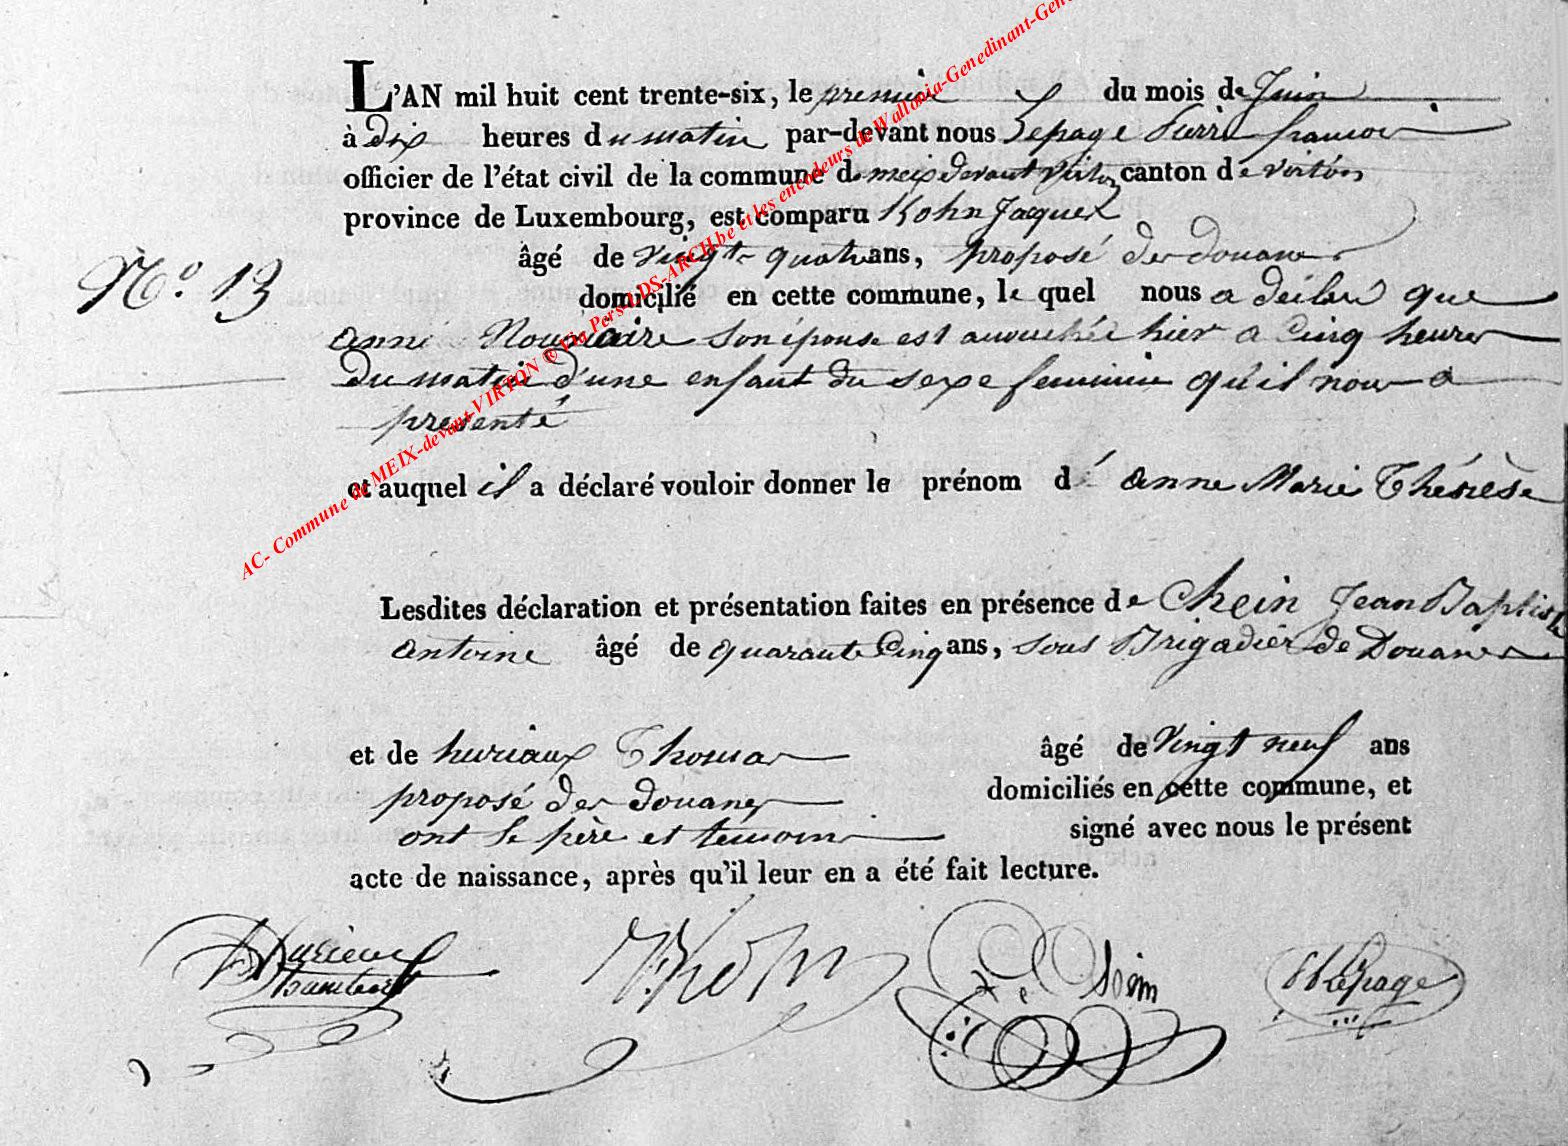 L'AN mil huit cent trente-six, le premier du mois de Juin
à dix heures du matin par-devant nous Lepage Pierre francois
officier de l'état civil de la commune de meix devant virton canton de virton
province de Luxembourg, est comparu Kohn Jacques
âgé de vingt quatre ans, proposé des douanes
N.º 13
domicilié en cette commune, le quel nous a déclaré que
anne son épouse est accouchée hier a Cinq heures
du matin d'une enfant du sexe feminin qu'il nous a
presenté
et auquel il a déclaré vouloir donner le prénom dé Anne Marie Thérèse
Lesdites déclaration et présentation faites en présence de Chein Jean Baptiste
antoine âgé de quarante Cinq ans, sous Brigadier de Douanes
et de huriaux Thomas âgé de Vingt neuf ans
proposé des douanes domiciliés en cette commune, et
ont le père et temoins signé avec nous le présent
acte de naissance, après qu'il leur en a été fait lecture.
Lepage
AC- Commune de MEIX-devant-VIRTON © Via Persoons-ARCH.be et les encodeurs de Wallonia-Genedinant-Gen